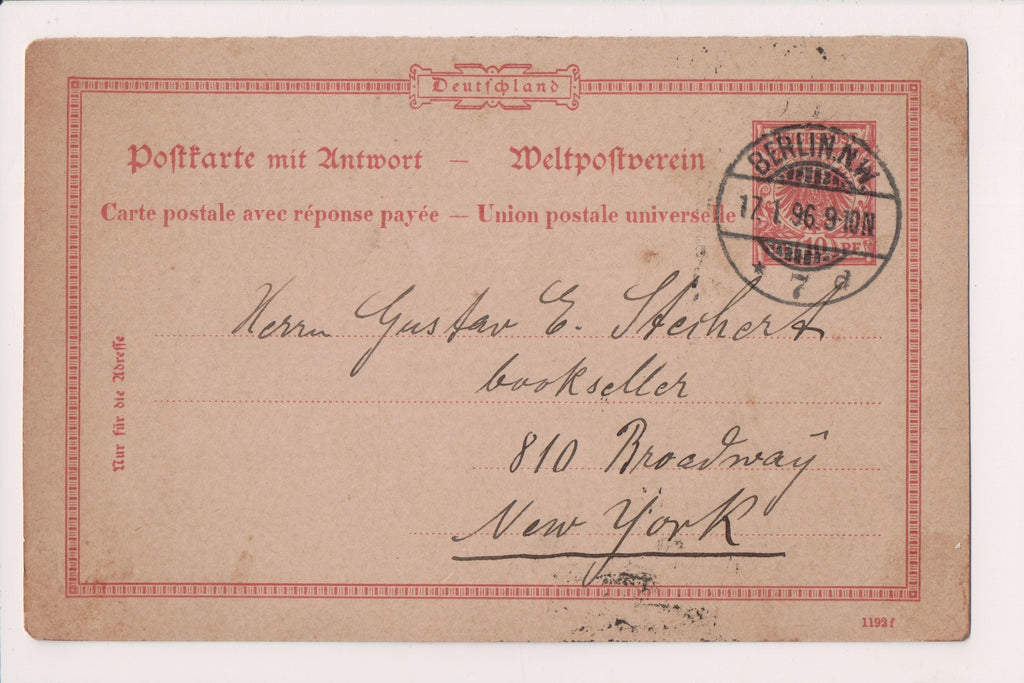 Deutschland
Postkarte mit Antwort — Weltpostverein
Carte postale avec réponse payée — Union postale universelle
BERLIN. N.W.
17. 1. 96. 9-10N
* 7 d
10 PF
Nur für die Adresse
Herrn Gustav E. Stechert
bookseller
810 Broadway
New York
1192 f